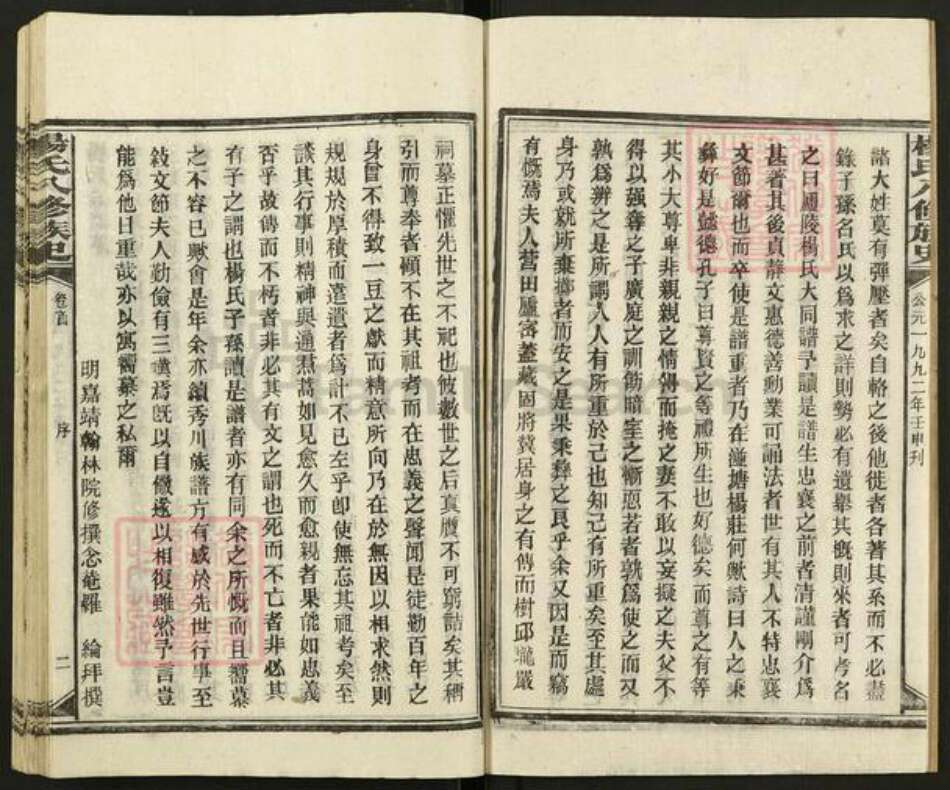 楊氏八修族史
公元一九九二年壬申刊
諸大姓莫有彈壓者矣自輅之後他徙者各著其系而不必盡
錄子孫名氏以為求之詳則勢必有遺舉其槪則來者可考名
之曰廬陵楊氏大同譜予讀是譜生忠襄之前者清謹剛介為
甚著其後貞靜文惠德善動業可誦法者世有其人不特忠襄
文節爾也而卒使是譜重者乃在湴塘楊莊何歟詩曰人之秉
彝好是懿德孔子曰尊賢之等禮所生也好德矣而尊之有等
其小大尊卑非親親之情得而掩之妻不敢以妄擬之夫父不
得以强奪之子廣庭之訓飭暗室之慚恧若者孰為使之而又
孰為辨之是所謂人人有所重於己也知己有所重矣至其處
身乃或就所棄擲者而安之是果秉彝之良乎余又因是而竊
有慨焉夫人營田廬密蓋藏固將冀居身之有傳而樹邱壠嚴
祠墓正懼先世之不祀也彼數世之后真贋不可窮詰矣其稱
引而尊奉者顧不在其祖考而在忠義之聲聞是徒勤百年之
身曾不得致一豆之獻而精意所向乃在於無因以相求然則
規規於厚積而遺遺者為計不已左乎卽使無忘其祖考矣至
談其行事則精神與通焄蒿如見愈久而愈親者果能如忠義
否乎故傳而不朽者非必其有文之謂也死而不亡者非必其
有子之謂也楊氏子孫讀是譜者亦有同余之所慨而且嚮慕
之不容已歟會是年余亦續秀川族譜方有感於先世行事至
敍文節夫人勤儉有三嘆焉旣以自儆遂以相復雖然予言豈
能為他日重哉亦以寓嚮慕之私爾
明嘉靖翰林院修撰念菴羅 綸拜撰
楊氏八修族史
卷首
序
二